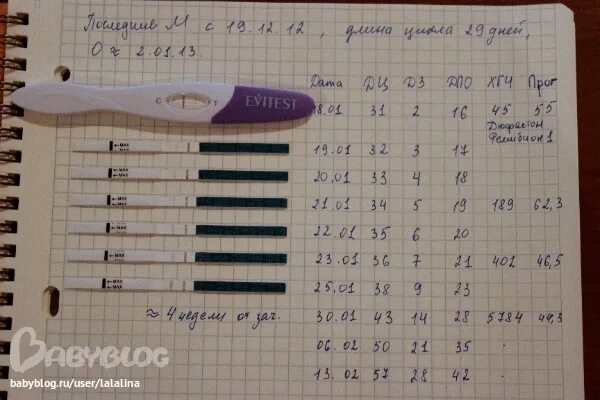 Последние М с 19.12.12, длина цикла 29 дней,
О ≈ 2.01.13.
Дата ДЦ ДЗ ДПО ХГЧ Прог
C T EVITEST 18.01 31 2 16 45 55
Дюфастон
Фемибион 1
← MAX 19.01 32 3 17
← MAX 20.01 33 4 18
← MAX 21.01 34 5 19 189 62,3
← MAX 22.01 35 6 20
← MAX 23.01 36 7 21 402 46,5
← MAX 25.01 38 9 23
≈ 4 недели от зач. 30.01 43 14 28 5784 44,3
06.02 50 21 35 .
13.02 57 28 42 .
BABYBLOG
babyblog.ru/user/lalalina